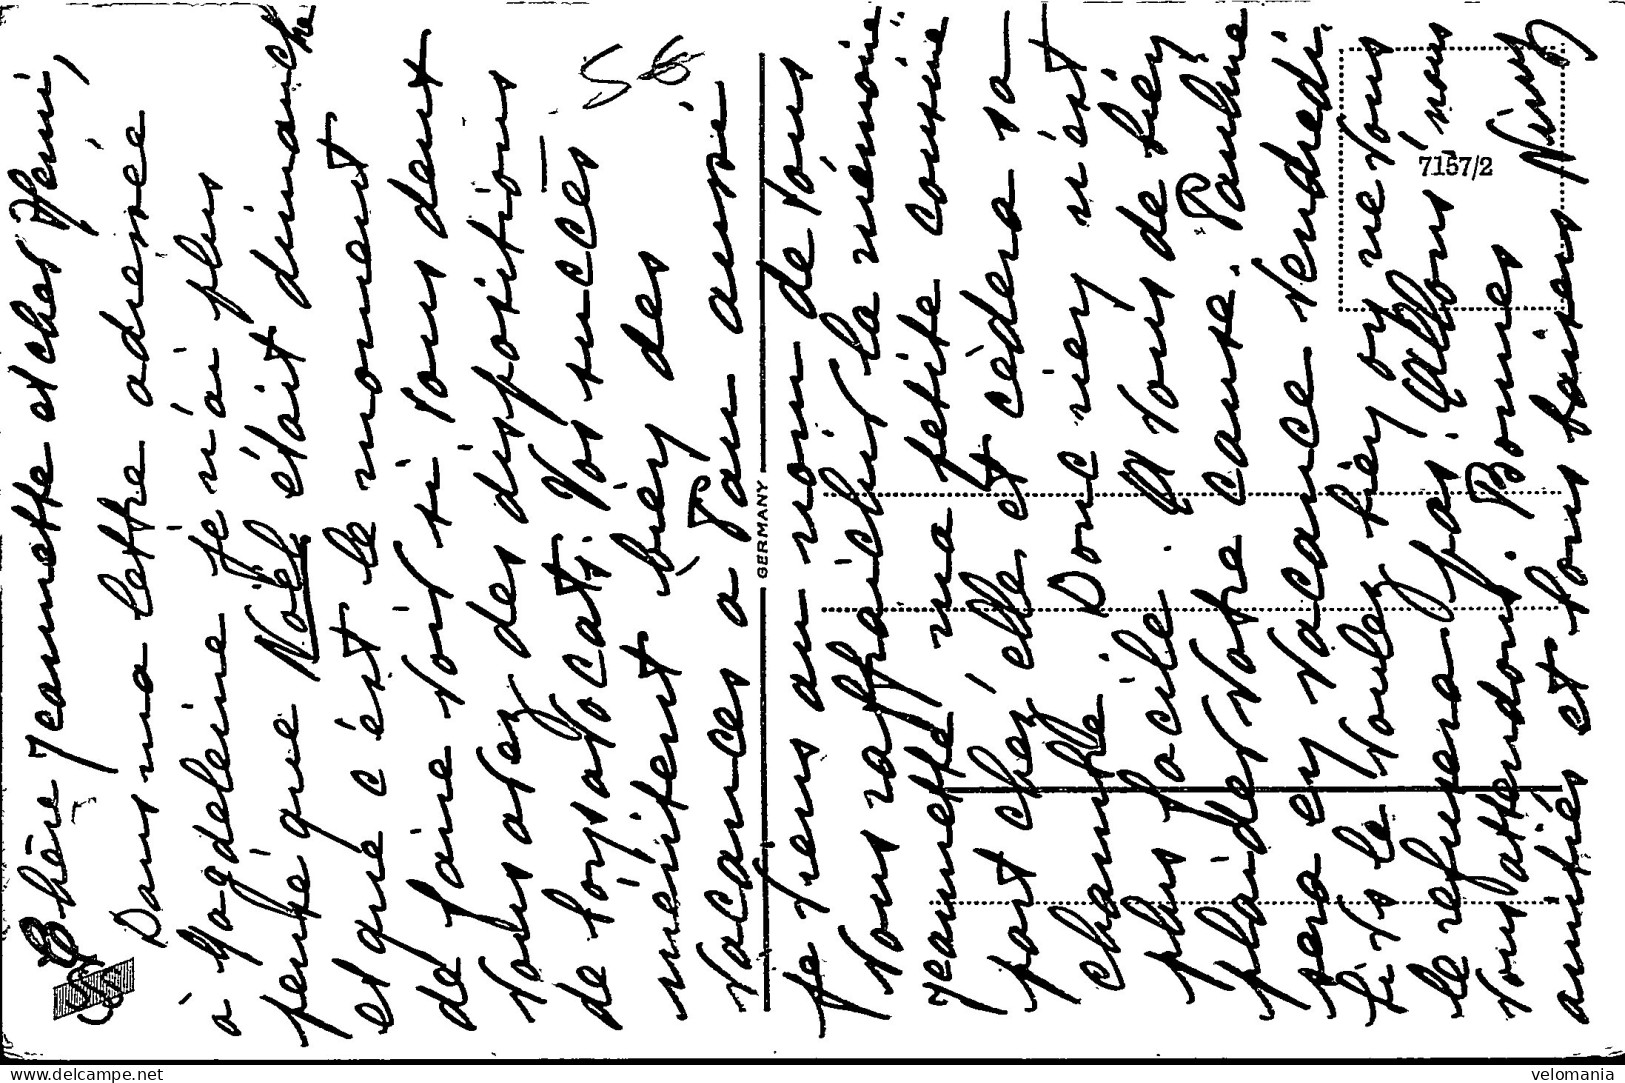 Chère Jeannette et cher Henri,
Dans ma lettre adressée
à Magdeleine je n'ai plus
pensé que Noël était dimanche
et que c'est le moment
de faire voir si vous deux
vous avez des dispositions
de bons avocats. Vos succès
méritent bien des
vacances à Pau aussi
56
je viens au nom de tous
vous rafraîchir la mémoire.
Jeannette ma petite cousine
part chez elle et cèdera sa
chambre. Donc rien n'est
plus facile. A vous de bien
plaider votre cause. Pauline
sera en vacance vendredi.
Si vs le voulez bien on ne vous
le refusera pas. Allons! nous
vous attendons. Bonnes
amitiés et bons baisers Ninz
GERMANY
7157/2
www.delcampe.net
velomania